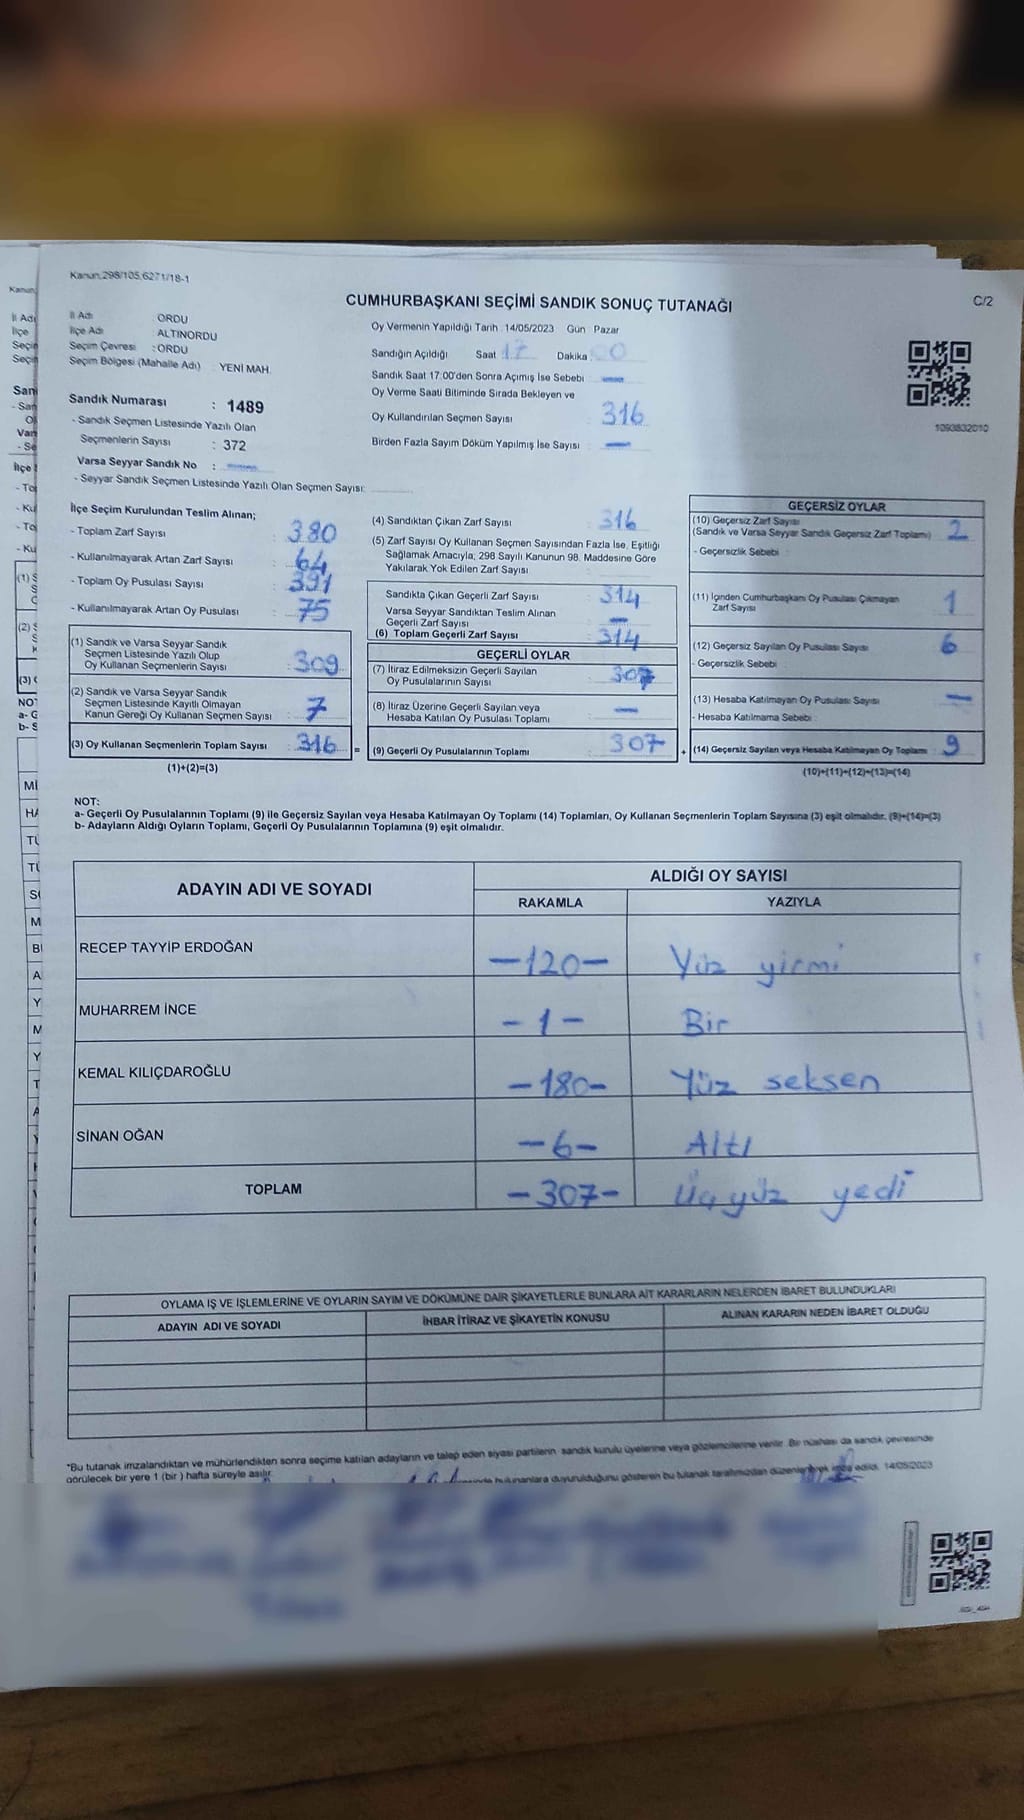 Kanun;298/105,6271/18-1
CUMHURBAŞKANI SEÇİMİ SANDIK SONUÇ TUTANAĞI
C/2
İl Adı : ORDU
İlçe Adı : ALTINORDU
Seçim Çevresi : ORDU
Seçim Bölgesi (Mahalle Adı) : YENİ MAH.
Sandık Numarası : 1489
- Sandık Seçmen Listesinde Yazılı Olan
Seçmenlerin Sayısı : 372
Varsa Seyyar Sandık No : —
- Seyyar Sandık Seçmen Listesinde Yazılı Olan Seçmen Sayısı:
Oy Vermenin Yapıldığı Tarih : 14/05/2023 Gün : Pazar
Sandığın Açıldığı Saat 17 Dakika : 00
Sandık Saat 17:00'den Sonra Açımış İse Sebebi —
Oy Verme Saati Bitiminde Sırada Bekleyen ve
Oy Kullandırılan Seçmen Sayısı : 316
Birden Fazla Sayım Döküm Yapılmış İse Sayısı : —
1093832010
İlçe Seçim Kurulundan Teslim Alınan;
- Toplam Zarf Sayısı : 380
- Kullanılmayarak Artan Zarf Sayısı : 64
- Toplam Oy Pusulası Sayısı : 391
- Kullanılmayarak Artan Oy Pusulası : 75
(1) Sandık ve Varsa Seyyar Sandık
Seçmen Listesinde Yazılı Olup
Oy Kullanan Seçmenlerin Sayısı : 309
(2) Sandık ve Varsa Seyyar Sandık
Seçmen Listesinde Kayıtlı Olmayan
Kanun Gereği Oy Kullanan Seçmen Sayısı : 7
(3) Oy Kullanan Seçmenlerin Toplam Sayısı : 316 =
(1)+(2)=(3)
(4) Sandıktan Çıkan Zarf Sayısı : 316
(5) Zarf Sayısı Oy Kullanan Seçmen Sayısından Fazla İse, Eşitliği
Sağlamak Amacıyla; 298 Sayılı Kanunun 98. Maddesine Göre
Yakılarak Yok Edilen Zarf Sayısı
Sandıkta Çıkan Geçerli Zarf Sayısı : 314
Varsa Seyyar Sandıktan Teslim Alınan
Geçerli Zarf Sayısı : —
(6) Toplam Geçerli Zarf Sayısı : 314
GEÇERLİ OYLAR
(7) İtiraz Edilmeksizin Geçerli Sayılan
Oy Pusulalarının Sayısı : 307
(8) İtiraz Üzerine Geçerli Sayılan veya
Hesaba Katılan Oy Pusulası Toplamı : —
(9) Geçerli Oy Pusulalarının Toplamı : 307 +
GEÇERSİZ OYLAR
(10) Geçersiz Zarf Sayısı
(Sandık ve Varsa Seyyar Sandık Geçersiz Zarf Toplamı) : 2
- Geçersizlik Sebebi :
(11) İçinden Cumhurbaşkanı Oy Pusulası Çıkmayan
Zarf Sayısı : 1
(12) Geçersiz Sayılan Oy Pusulası Sayısı : 6
- Geçersizlik Sebebi :
(13) Hesaba Katılmayan Oy Pusulası Sayısı : —
- Hesaba Katılmama Sebebi :
(14) Geçersiz Sayılan veya Hesaba Katılmayan Oy Toplamı : 9
(10)+(11)+(12)+(13)=(14)
NOT:
a- Geçerli Oy Pusulalarının Toplamı (9) ile Geçersiz Sayılan veya Hesaba Katılmayan Oy Toplamı (14) Toplamları, Oy Kullanan Seçmenlerin Toplam Sayısına (3) eşit olmalıdır. (9)+(14)=(3)
b- Adayların Aldığı Oyların Toplamı, Geçerli Oy Pusulalarının Toplamına (9) eşit olmalıdır.
ADAYIN ADI VE SOYADI ALDIĞI OY SAYISI
RAKAMLA YAZIYLA
RECEP TAYYİP ERDOĞAN -120- Yüz yirmi
MUHARREM İNCE -1- Bir
KEMAL KILIÇDAROĞLU -180- Yüz seksen
SİNAN OĞAN -6- Altı
TOPLAM -307- Üçyüz yedi
OYLAMA İŞ VE İŞLEMLERİNE VE OYLARIN SAYIM VE DÖKÜMÜNE DAİR ŞİKAYETLERLE BUNLARA AİT KARARLARIN NELERDEN İBARET BULUNDUKLARI
ADAYIN ADI VE SOYADI İHBAR İTİRAZ VE ŞİKAYETİN KONUSU ALINAN KARARIN NEDEN İBARET OLDUĞU
*Bu tutanak imzalandıktan ve mühürlendikten sonra seçime katılan adayların ve talep eden siyasi partilerin sandık kurulu üyelerine veya gözlemcilerine verilir. Bir nüshası da sandık çevresinde
görülecek bir yere 1 (bir) hafta süreyle asılır.
bulunanlara duyurulduğunu gösteren bu tutanak tarafımızdan düzenlenerek imza edildi. 14/05/2023